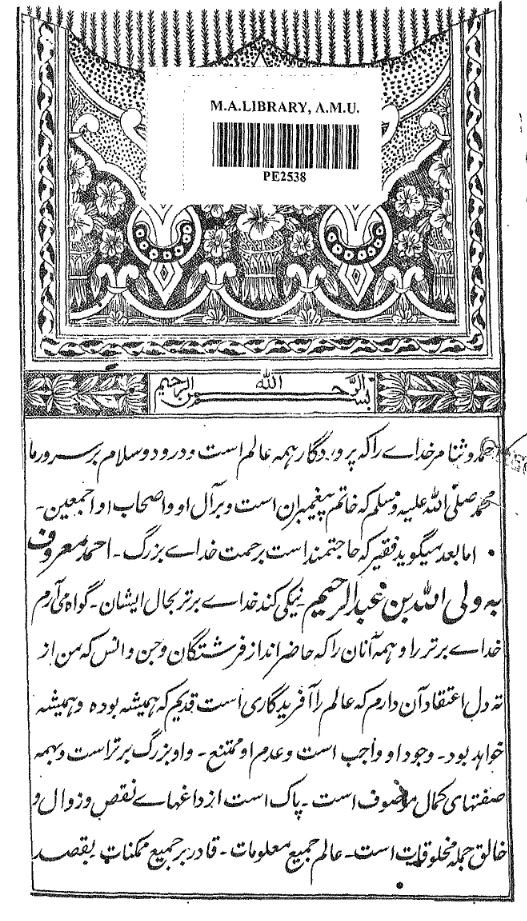 M.A.LIBRARY, A.M.U.
PE2538
بسم الله الرحمن الرحیم
حمد و ثنا مر خداے را که پروردگار همه عالم است و درود و سلام بر سرور ما
محمد صلی الله علیه وسلم که خاتم پیغمبران است و بر آل او و اصحاب او اجمعین-
اما بعد میگوید فقیر که حاجتمند است برحمت خداے بزرگ - احمد معروف
به ولی الله بن عبد الرحیم نیکی کند خداے برتر بحال ایشان - گواه می آرم
خداے برتر را و همه آنان را که حاضر اند از فرشتگان و جن و انس که من از
ته دل اعتقاد آن دارم که عالم را آفریدگاری است قدیم که همیشه بوده و همیشه
خواهد بود - وجود او واجب است و عدم او ممتنع - و او بزرگ برتر است و بهمه
صفتهای کمال موصوف است - پاک است از داغهاے نقص و زوال و
خالق جمله مخلوقات است - عالم جمیع معلومات - قادر بر جمیع ممکنات بقصد